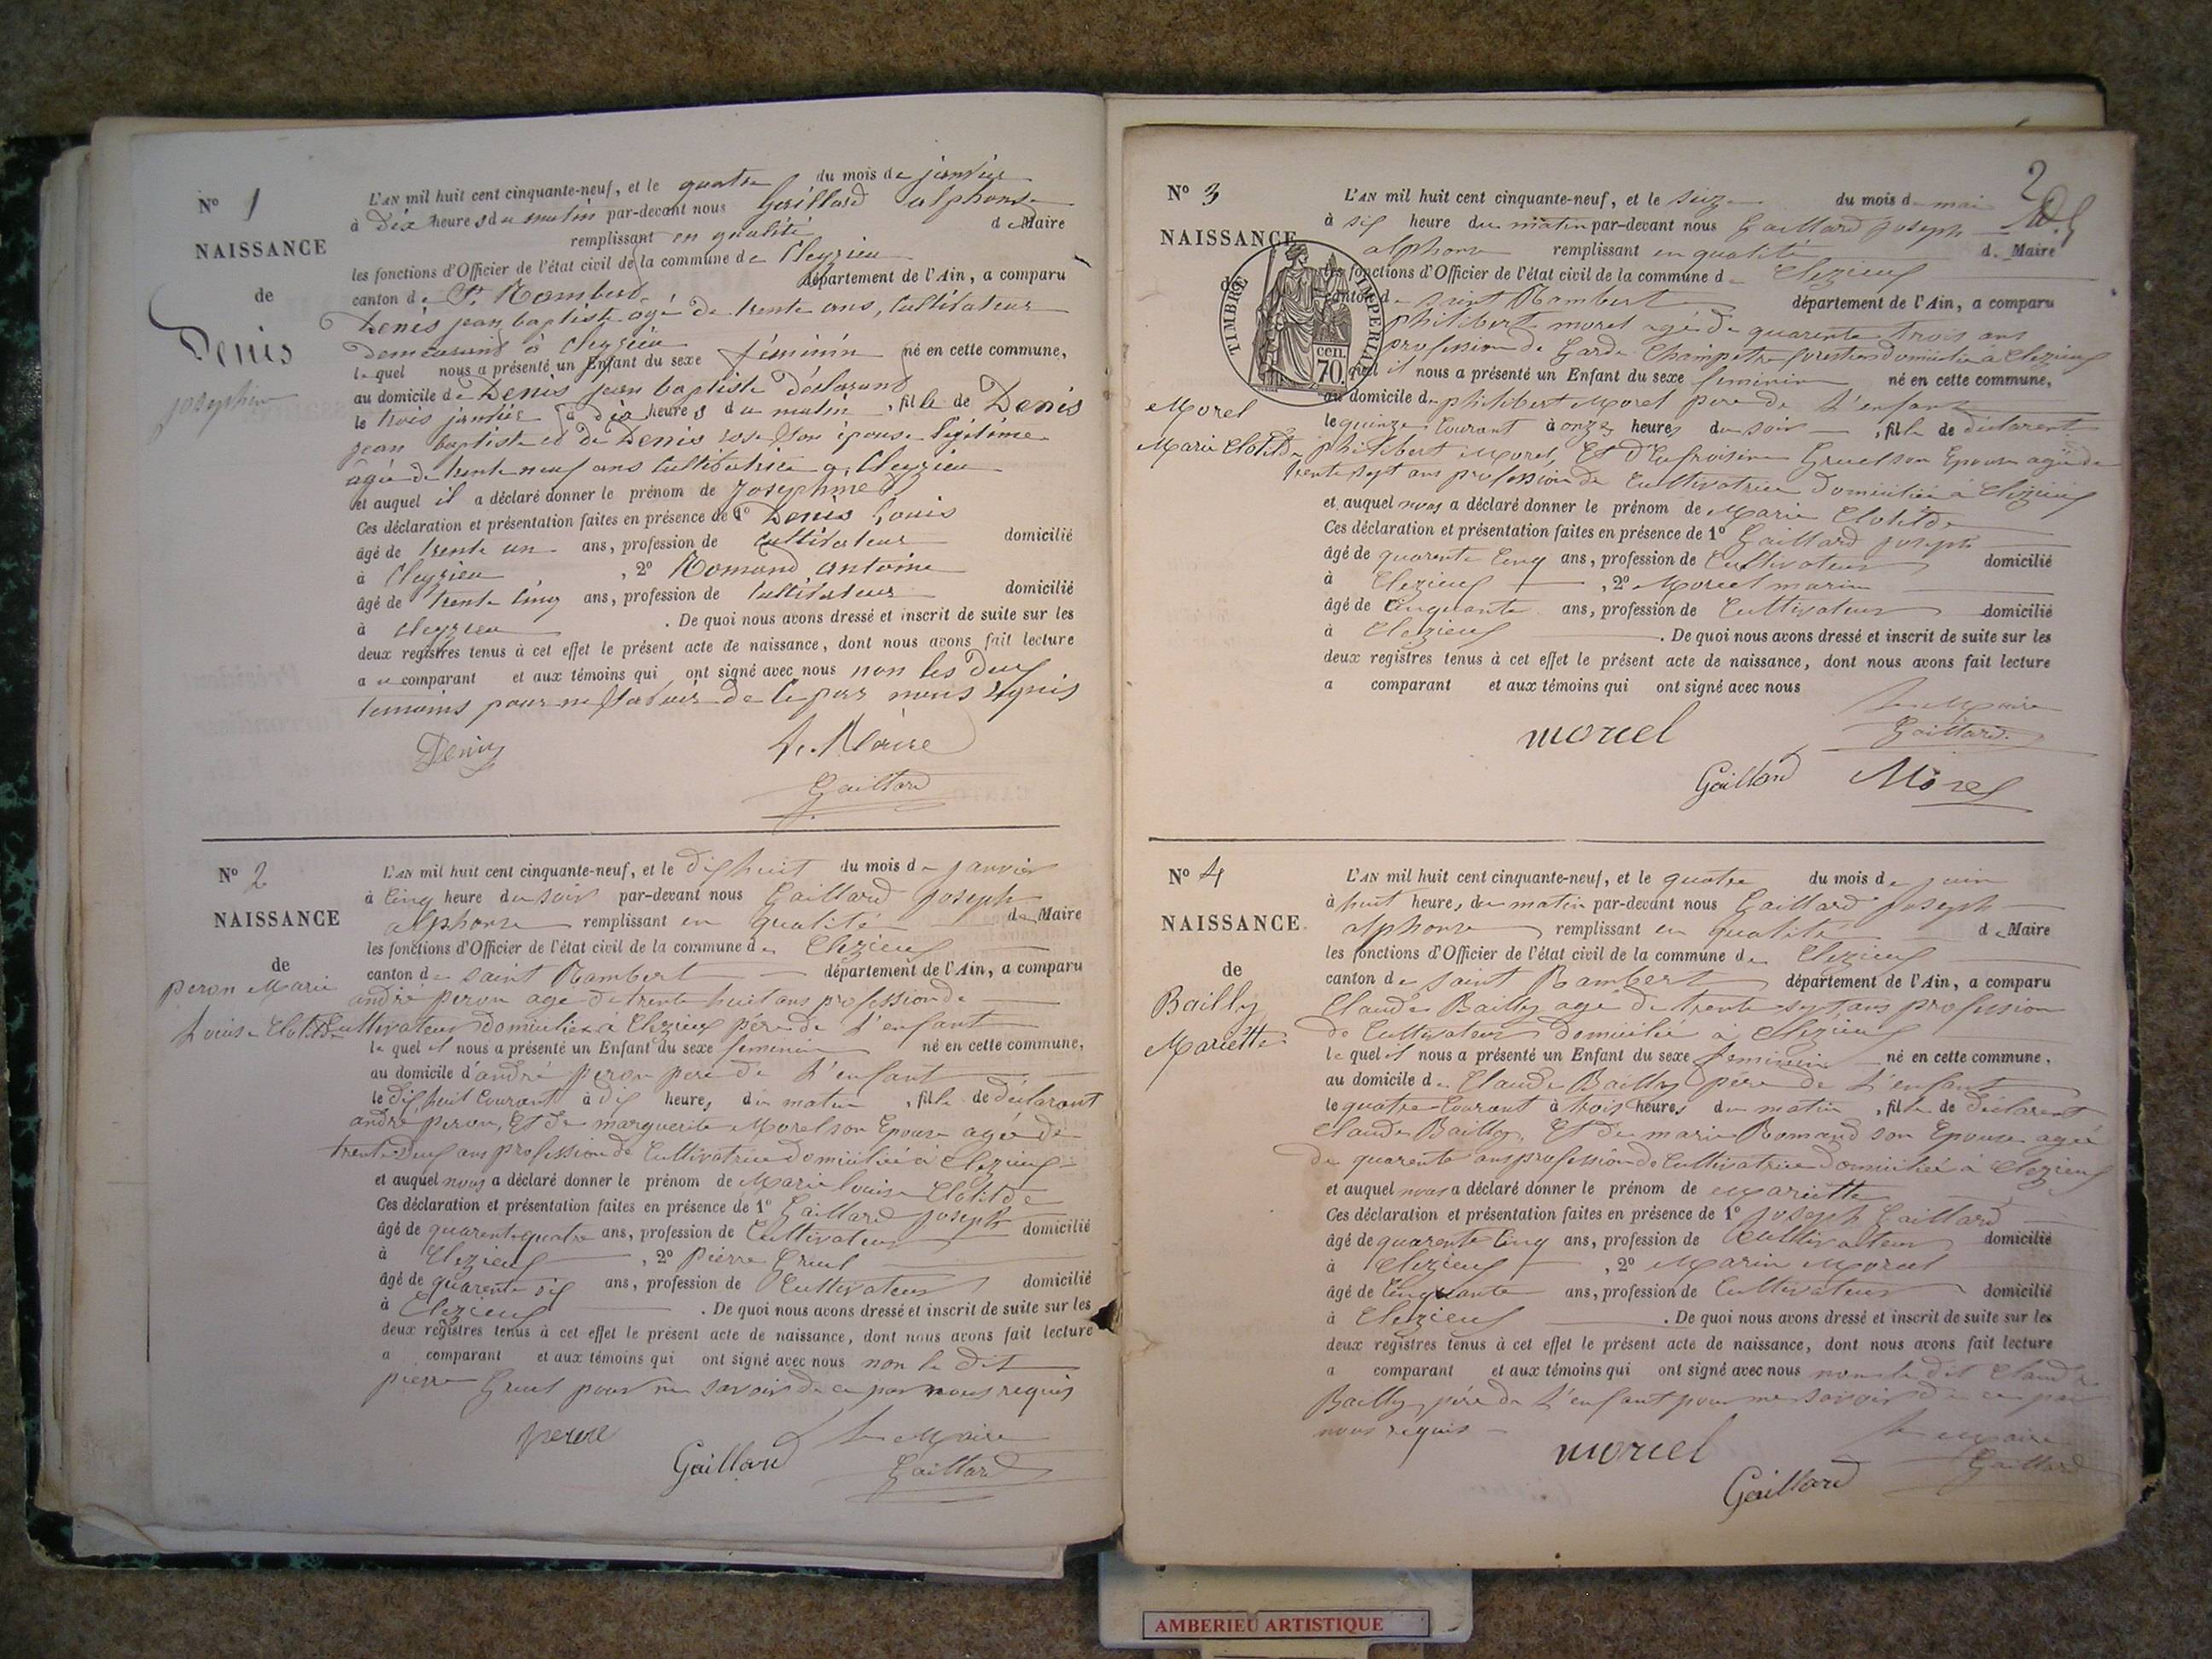 N° 1
NAISSANCE
de
Denis
josephine
L'AN mil huit cent cinquante-neuf, et le quatre du mois de janvier
à dix heures du matin par-devant nous Gaillard alphonse
remplissant en qualité de Maire
les fonctions d'Officier de l'état civil de la commune de Cleyzieu
canton de St Rambert département de l'Ain, a comparu
Denis jean baptiste agé de trente ans, Cultivateur
demeurant à Cleyzieu
lequel nous a présenté un Enfant du sexe féminin né en cette commune,
au domicile de Denis jean baptiste déclarant
le trois janvier à dix heures du matin, fille de Denis
jean baptiste et de Denis rose son épouse légitime
agée de trente neuf ans Cultivatrice a Cleyzieu
et auquel il a déclaré donner le prénom de Josephine
Ces déclaration et présentation faites en présence de 1° Denis Louis
âgé de trente un ans, profession de Cultivateur domicilié
à Cleyzieu, 2° Romand antoine
âgé de trente cinq ans, profession de Cultivateur domicilié
à Cleyzieu. De quoi nous avons dressé et inscrit de suite sur les
deux registres tenus à cet effet le présent acte de naissance, dont nous avons fait lecture
a comparant et aux témoins qui ont signé avec nous non les deux
temoins pour ne savoir de ce par nous
Denis Le Maire
Gaillard
N° 2
NAISSANCE
de
peron Marie
Louise Clotilde
L'AN mil huit cent cinquante-neuf, et le dix huit du mois de janvier
à cinq heure du soir par-devant nous Gaillard joseph
alphonse remplissant en qualité de Maire
les fonctions d'Officier de l'état civil de la commune de Clezieux
canton de saint Rambert département de l'Ain, a comparu
andré peron age de trente huit ans profession de
Cultivateur domicilié à Clezieux père de l'enfant
lequel il nous a présenté un Enfant du sexe feminin né en cette commune,
au domicile d'andré peron pere de l'enfant
le dix huit Courant à dix heure, du matin, fille de déclarant
andré peron, Et de marguerite Morel son Epouse agée de
trente deux ans profession de Cultivatrice domiciliée à Clezieux
et auquel nous a déclaré donner le prénom de Marie louise Clotilde
Ces déclaration et présentation faites en présence de 1° Gaillard joseph
âgé de quarente quatre ans, profession de Cultivateur domicilié
à Clezieux, 2° Pierre Gruel
âgé de quarente six ans, profession de Cultivateur domicilié
à Clezieux. De quoi nous avons dressé et inscrit de suite sur les
deux registres tenus à cet effet le présent acte de naissance, dont nous avons fait lecture
a comparant et aux témoins qui ont signé avec nous non le dit
pierre Gruel pour ne savoir de ce par nous requis
Gaillard Le Maire
Gaillard
2
N° 3
NAISSANCE
de
Morel
Marie Clotilde
TIMBRE IMPERIAL
CEN. 70.
L'AN mil huit cent cinquante-neuf, et le seize du mois de mai
à six heure du matin par-devant nous Gaillard joseph
alphonse remplissant en qualité de Maire
les fonctions d'Officier de l'état civil de la commune de Clezieux
canton de saint Rambert département de l'Ain, a comparu
philibert morel agé de quarente trois ans
profession de Garde Champetre forestier domicilié à Clezieux
lequel il nous a présenté un Enfant du sexe feminin né en cette commune,
au domicile de philibert Morel pere de l'enfant
le quinze Courant à onze heures du soir, fille de déclarent
philibert Morel, Et d'Eufroisine Gruel son Epouse agée de
trente sept ans profession de Cultivatrice domiciliée à Clezieux
et auquel nous a déclaré donner le prénom de Marie Clotilde
Ces déclaration et présentation faites en présence de 1° Gaillard joseph
âgé de quarente cinq ans, profession de Cultivateur domicilié
à Clezieux, 2° Morel marin
âgé de Cinquante ans, profession de Cultivateur domicilié
à Clezieux. De quoi nous avons dressé et inscrit de suite sur les
deux registres tenus à cet effet le présent acte de naissance, dont nous avons fait lecture
a comparant et aux témoins qui ont signé avec nous
Le Maire
morel Gaillard
Gaillard Morel
N° 4
NAISSANCE
de
Bailly
Mariette
L'AN mil huit cent cinquante-neuf, et le quatre du mois de juin
à huit heure, du matin par-devant nous Gaillard joseph
alphonse remplissant en qualité de Maire
les fonctions d'Officier de l'état civil de la commune de Clezieux
canton de saint Rambert département de l'Ain, a comparu
Claude Bailly agé de trente sept ans profession
de Cultivateur domicilié à Clezieux
lequel il nous a présenté un Enfant du sexe feminin né en cette commune,
au domicile de Claude Bailly père de l'enfant
le quatre Courant à trois heures du matin, fille de déclarent
Claude Bailly, Et de marie Romand son Epouse agée
de quarente ans profession de Cultivatrice domiciliée à Clezieux
et auquel nous a déclaré donner le prénom de Mariette
Ces déclaration et présentation faites en présence de 1° joseph Gaillard
âgé de quarente cinq ans, profession de Cultivateur domicilié
à Clezieux, 2° Marin Morel
âgé de Cinquante ans, profession de Cultivateur domicilié
à Clezieux. De quoi nous avons dressé et inscrit de suite sur les
deux registres tenus à cet effet le présent acte de naissance, dont nous avons fait lecture
a comparant et aux témoins qui ont signé avec nous non le dit Claude
Bailly, père de l'enfant pour ne savoir de ce par
nous requis
Le Maire
morel Gaillard
Gaillard
AMBERIEU ARTISTIQUE